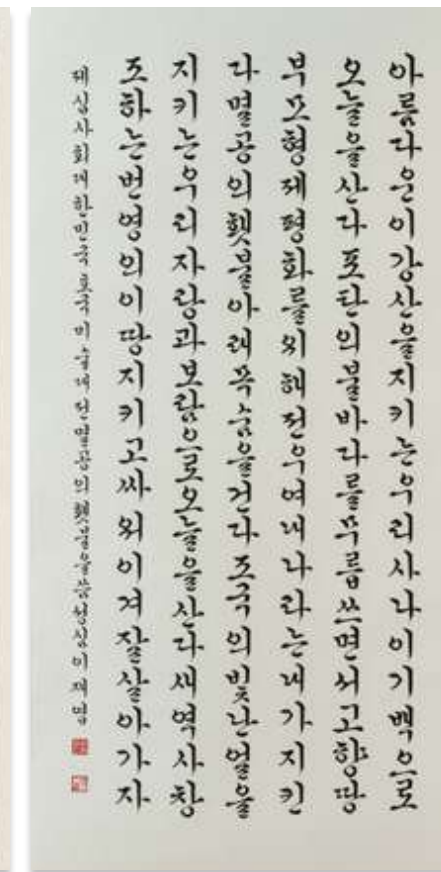 아름다운이강산을지키는우리사나이기백으로
오늘을산다포탄의불바다를무릅쓰면서고향땅
부모형제평화를위해전우여내나라는내가지킨
다멸공의횃불아래목숨을건다조국의빛난얼을
지키는우리자랑과보람으로오늘을산다새역사창
조하는번영의이땅지키고싸워이겨잘살아가자
제십사회대한민국호국미술대전멸공의횃불을